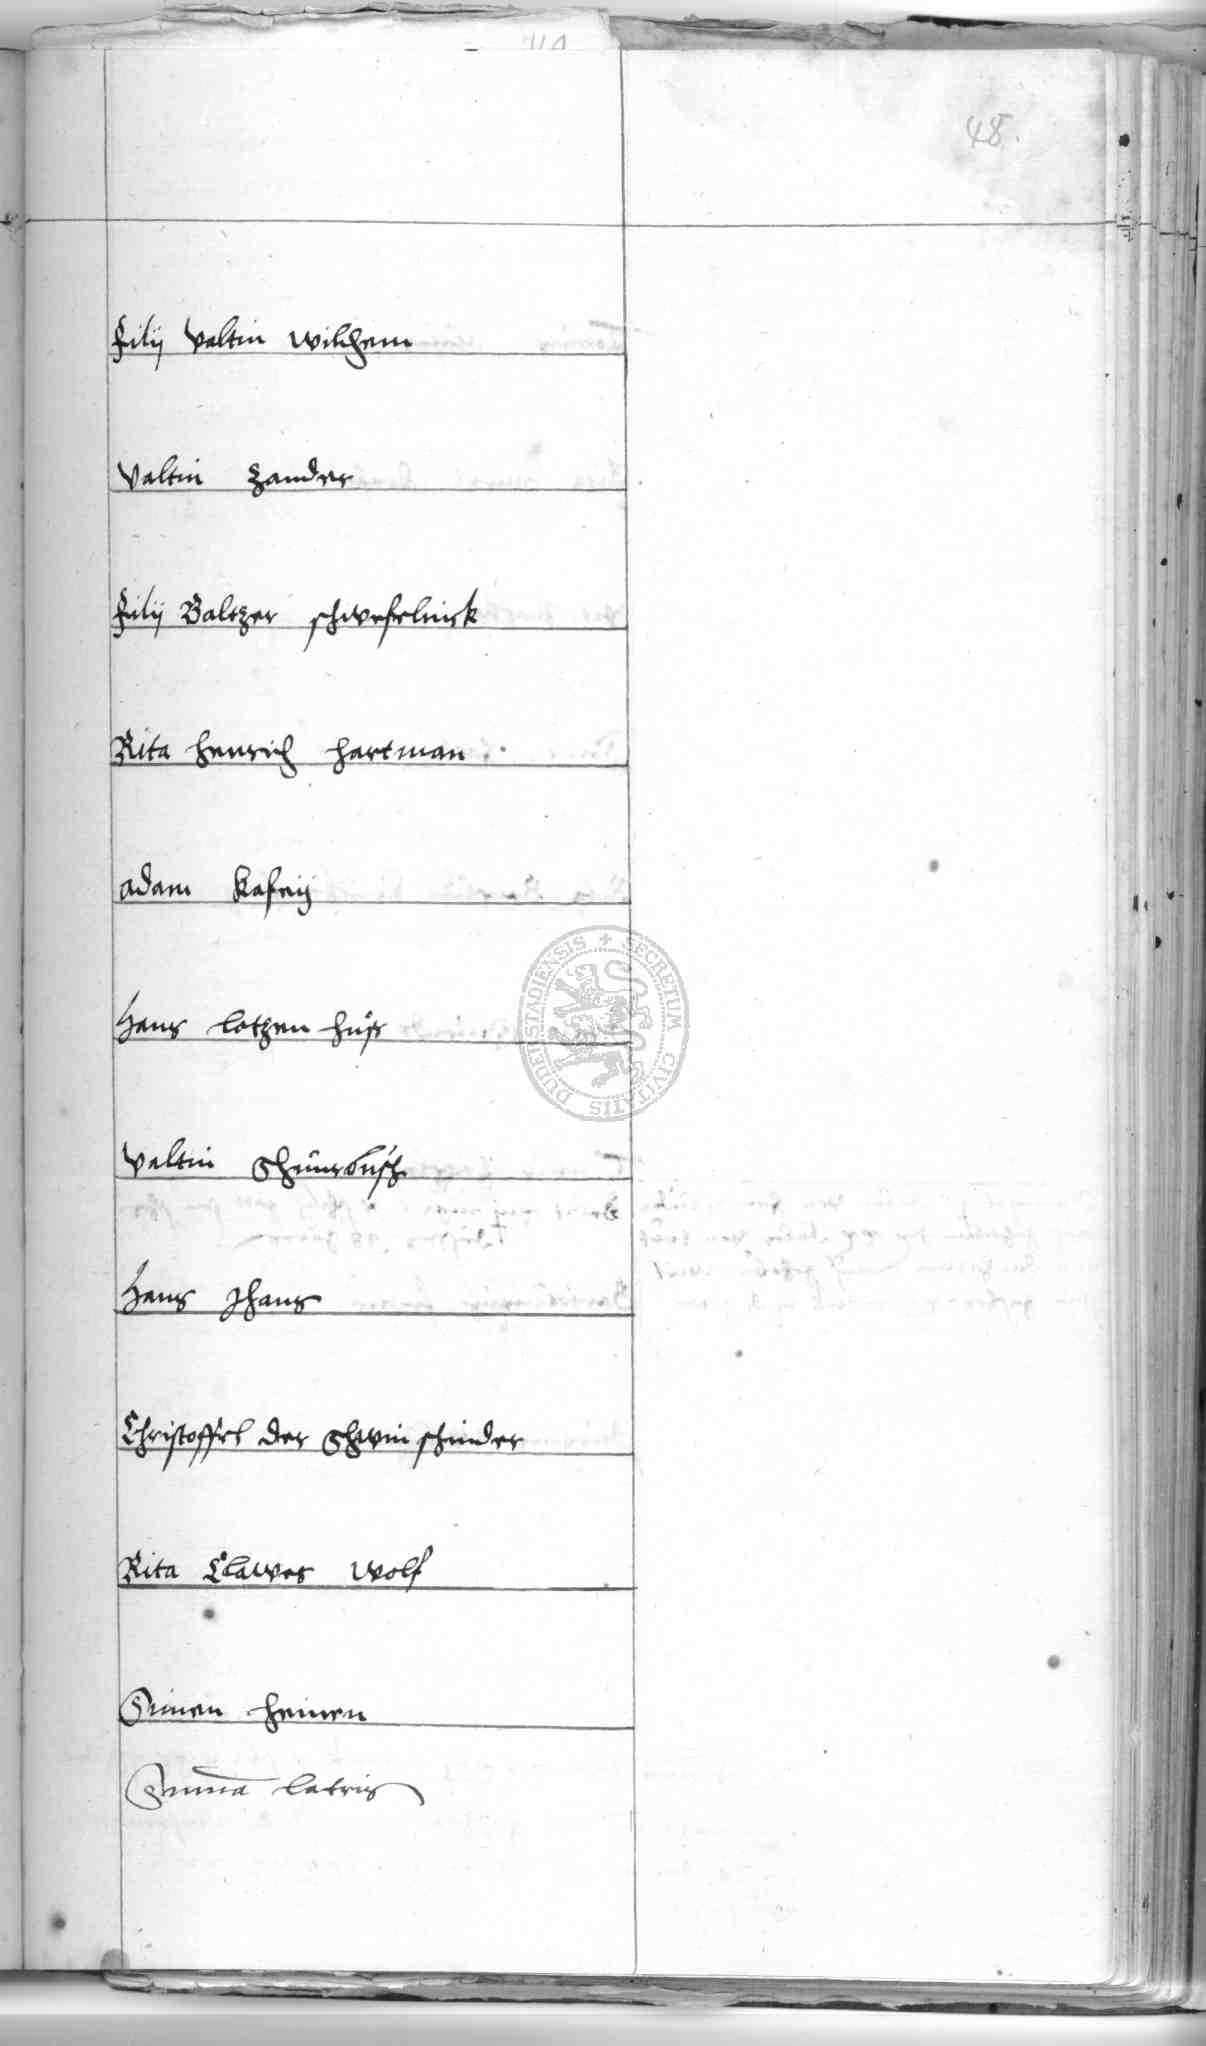 48.
filij Valtin Wilhem
Valtin Zander
filij Baltzer schwefelnick
Rita Henrich Hartman
Adam
Hans lotzen
Valtin
Hans Jhans
Christoffel der Schwin schnider
Rita Clawes Wolf
Simen Heinen
Summa lateris
SECRETUM CIVITATIS DUDERSTADIENSIS